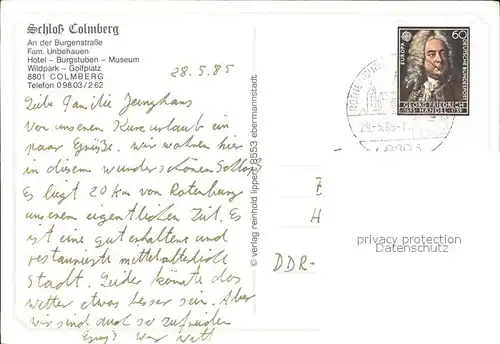 Schloß Colmberg
An der Burgenstraße
Fam. Unbehauen
Hotel - Burgstuben - Museum
Wildpark - Golfplatz
8801 COLMBERG
Telefon 09803/262
28.5.85
Liebe Familie Junghans
Vor unserem Kururlaub ein
paar Grüße. Wir wohnen hier
in diesem wunderschönen Schloß
Es liegt 20 km von Rotenburg
unserem eigentlichen Ziel. Es
ist eine gut erhaltene und
restaurierte mittelalterliche
Stadt. Leider könnte das
Wetter etwas besser sein. Aber
wir sind auch so zufrieden
Gruß
© verlag reinhold lippert 8553 ebermannstadt
EUROPA
60
DEUTSCHE BUNDESPOST
GEORG FRIEDRICH
1685 HÄNDEL 1759
DDR-
privacy protection
Datenschutz